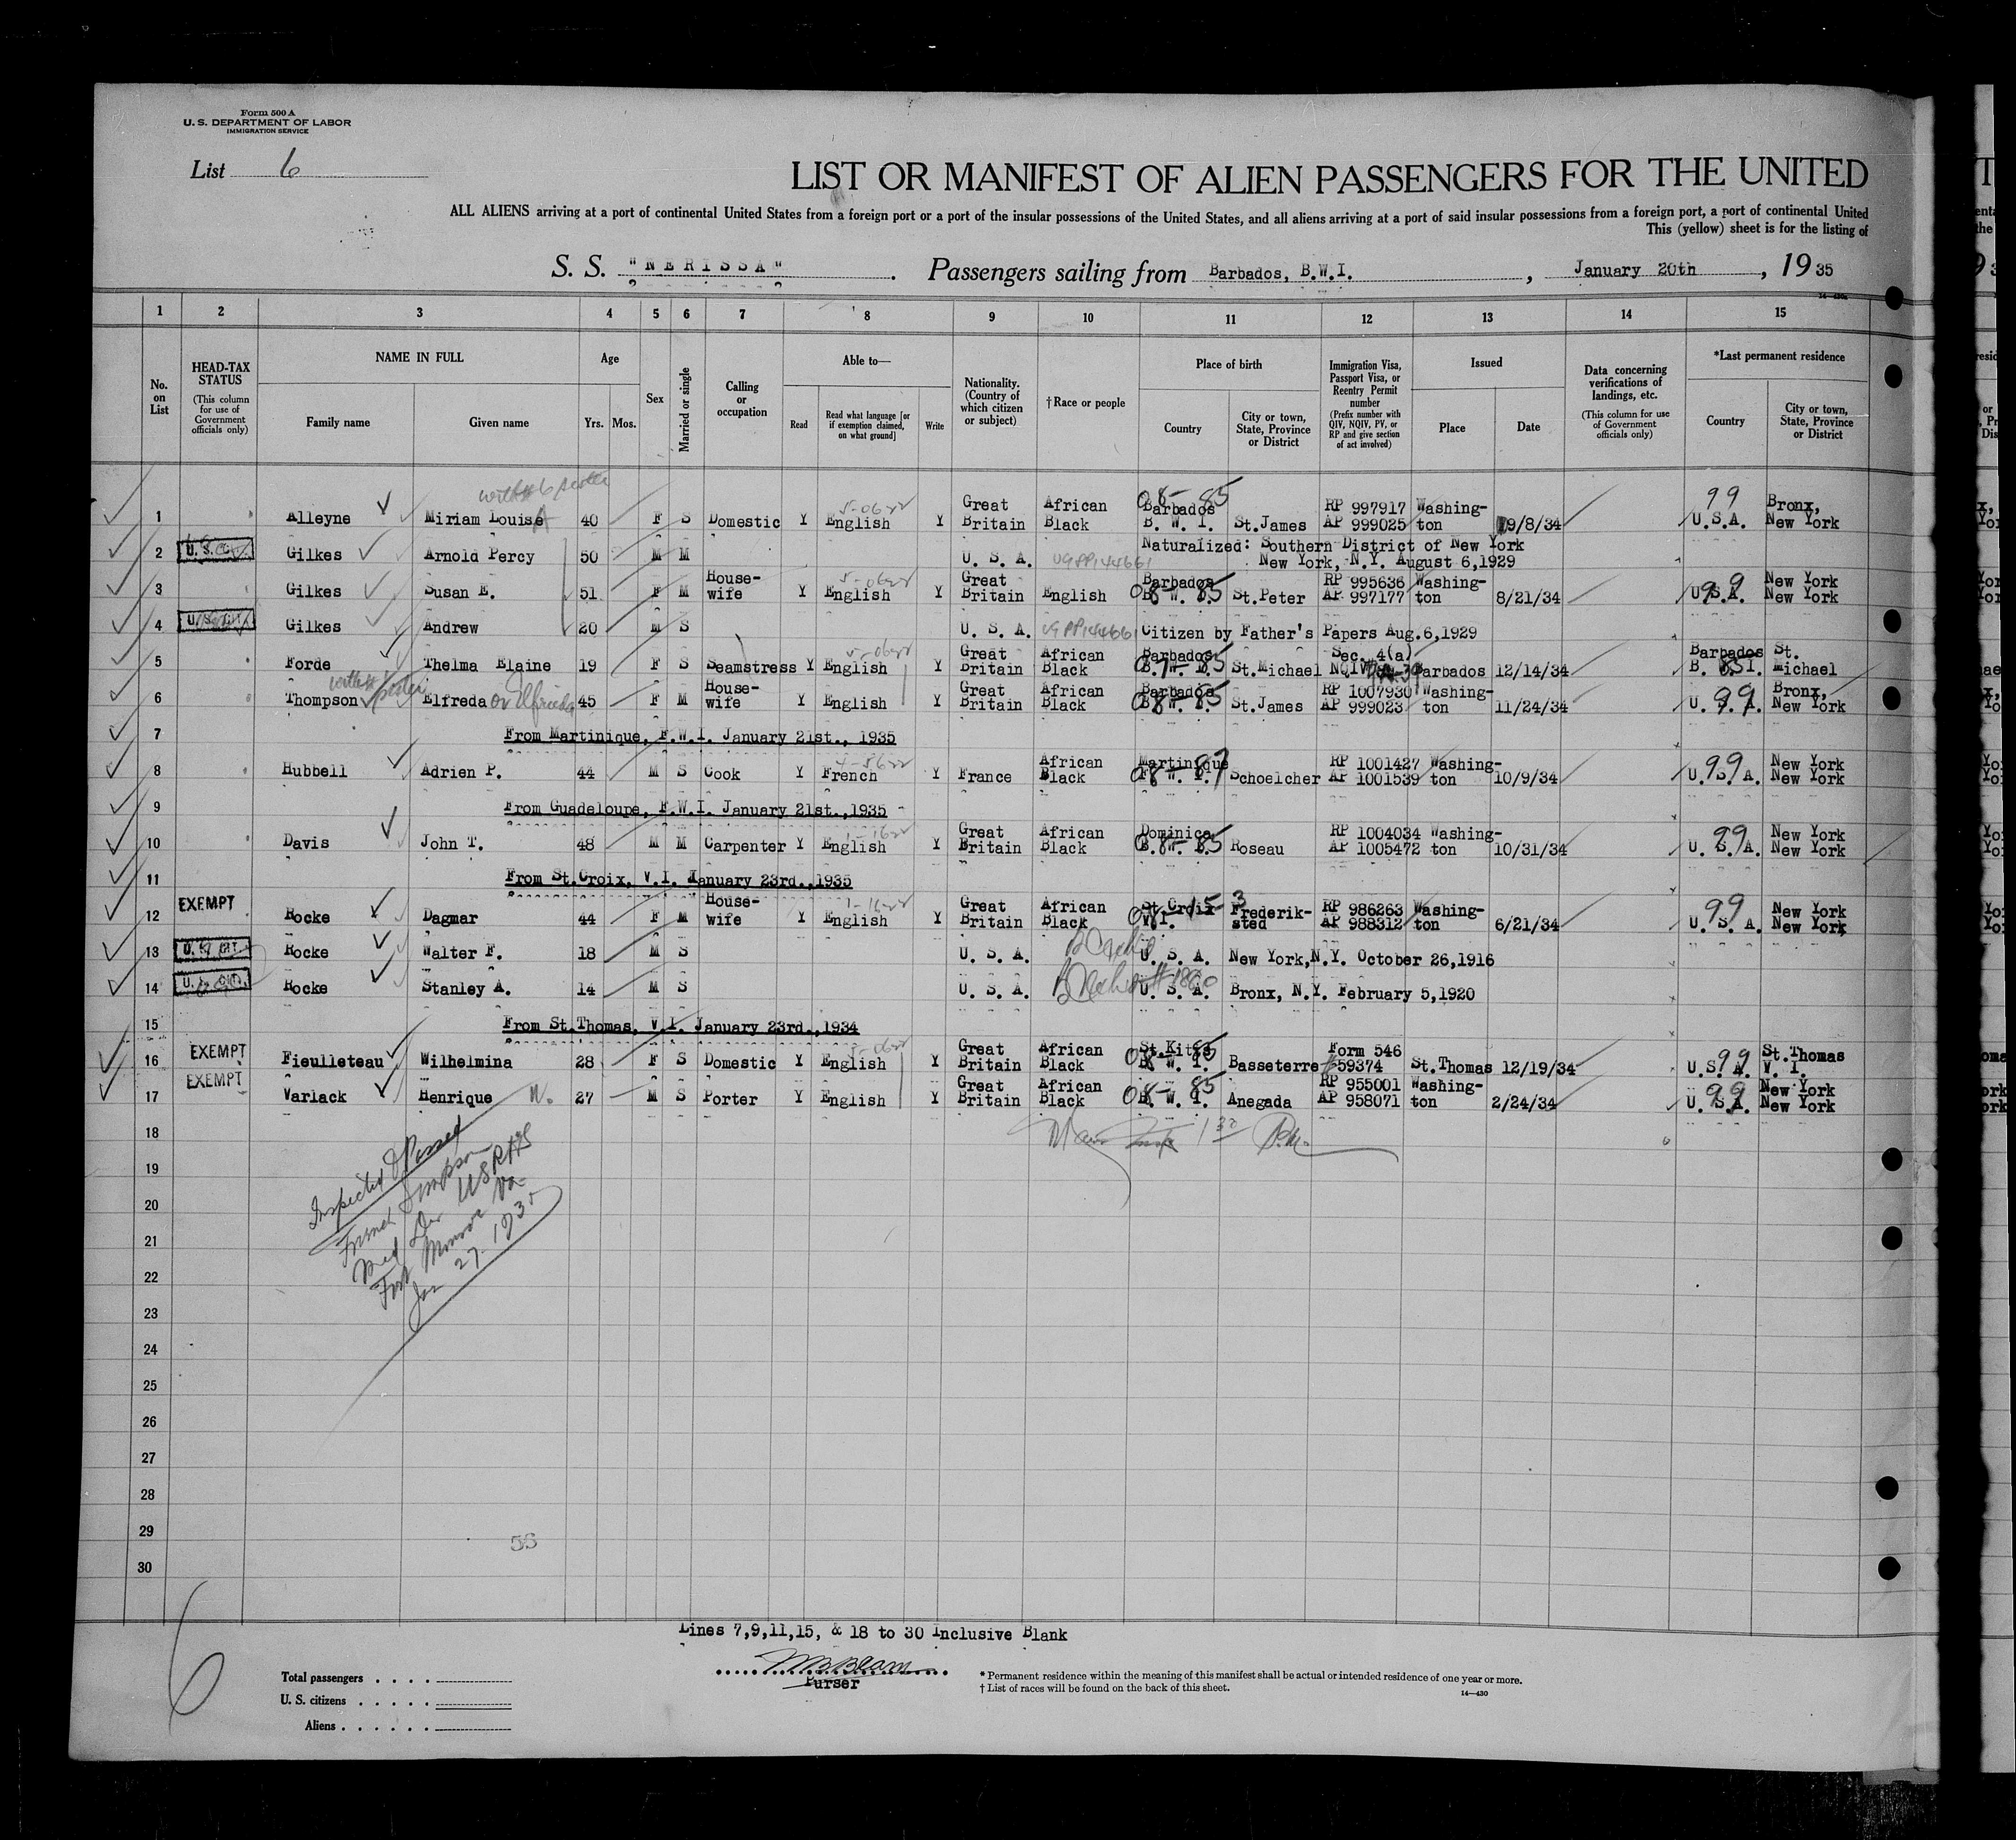 Form 500 A
U. S. DEPARTMENT OF LABOR
IMMIGRATION SERVICE
List 6
LIST OR MANIFEST OF ALIEN PASSENGERS FOR THE UNITED
ALL ALIENS arriving at a port of continental United States from a foreign port or a port of the insular possessions of the United States, and all aliens arriving at a port of said insular possessions from a foreign port, a port of continental United
This (yellow) sheet is for the listing of
S. S. "NERISSA" . Passengers sailing from Barbados, B.W.I. , January 20th , 19 35
1 2 3 4 5 6 7 8 9 10 11 12 13 14 15
No. on List
HEAD-TAX STATUS (This column for use of Government officials only)
NAME IN FULL
Family name Given name
Age
Yrs. Mos.
Sex
Married or single
Calling or occupation
Able to—
Read Read what language [or if exemption claimed, on what ground] Write
Nationality. (Country of which citizen or subject)
†Race or people
Place of birth
Country City or town, State, Province or District
Immigration Visa, Passport Visa, or Reentry Permit number (Prefix number with QIV, NQIV, PV, or RP and give section of act involved)
Issued
Place Date
Data concerning verifications of landings, etc. (This column for use of Government officials only)
*Last permanent residence
Country City or town, State, Province or District
1 Alleyne Miriam Louise 40 F S Domestic Y English Y Great Britain African Black Barbados B. W. I. St.James RP 997917 AP 999025 Washington 9/8/34 99 U.S.A. Bronx, New York
2 U. S. Gilkes Arnold Percy 50 M M U. S. A. Naturalized: Southern District of New York
New York, N.Y. August 6,1929
3 Gilkes Susan E. 51 F M House-wife Y English Y Great Britain English Barbados B. W. I. St.Peter RP 995636 AP 997177 Washington 8/21/34 99 U.S.A. New York New York
4 U. S. Gilkes Andrew 20 M S U. S. A. Citizen by Father's Papers Aug.6,1929
5 Forde Thelma Elaine 19 F S Seamstress Y English Y Great Britain African Black Barbados St.Michael Sec. 4(a) NQIV Barbados 12/14/34 Barbados B. W. I. St. Michael
6 Thompson Elfreda or Elfrieda 45 F M House-wife Y English Y Great Britain African Black Barbados B. W. I. St.James RP 1007930 AP 999023 Washington 11/24/34 U. S. A. 99 Bronx, New York
7 From Martinique, F.W.I. January 21st., 1935
8 Hubbell Adrien P. 44 M S Cook Y French Y France African Black Martinique F. W. I. Schoelcher RP 1001427 AP 1001539 Washington 10/9/34 99 U.S.A. New York New York
9 From Guadeloupe, F.W.I. January 21st.,1935
10 Davis John T. 48 M M Carpenter Y English Y Great Britain African Black Dominica B. W. I. Roseau RP 1004034 AP 1005472 Washington 10/31/34 99 U. S. A. New York New York
11 From St.Croix, V.I. January 23rd.,1935
12 EXEMPT Rocke Dagmar 44 F M House-wife Y English Y Great Britain African Black St Croix V I. Frederik-sted RP 986263 AP 988312 Washington 6/21/34 99 U. S. A. New York New York
13 U. S. Rocke Walter F. 18 M S U. S. A. U. S. A. New York,N.Y. October 26,1916
14 U. S. Rocke Stanley A. 14 M S U. S. A. U. S. A. Bronx, N.Y. February 5,1920
15 From St.Thomas, V.I. January 23rd.,1934
16 EXEMPT Fieulleteau Wilhelmina 28 F S Domestic Y English Y Great Britain African Black St.Kitts B. W. I. Basseterre Form 546 59374 St.Thomas 12/19/34 99 U.S.A. St.Thomas V. I.
17 EXEMPT Varlack Henrique W. 27 M S Porter Y English Y Great Britain African Black B. W. I. Anegada RP 955001 AP 958071 Washington 2/24/34 99 U. S A. New York New York
18
19
20
21
22
23
24
25
26
27
28
29
30
Inspected & Passed
Simpson
Med USPHS
Fort Monroe Va
Jan 27. 1935
56
6
Lines 7,9,11,15, & 18 to 30 Inclusive Blank
Purser
Total passengers
U. S. citizens
Aliens
* Permanent residence within the meaning of this manifest shall be actual or intended residence of one year or more.
† List of races will be found on the back of this sheet.
14—430